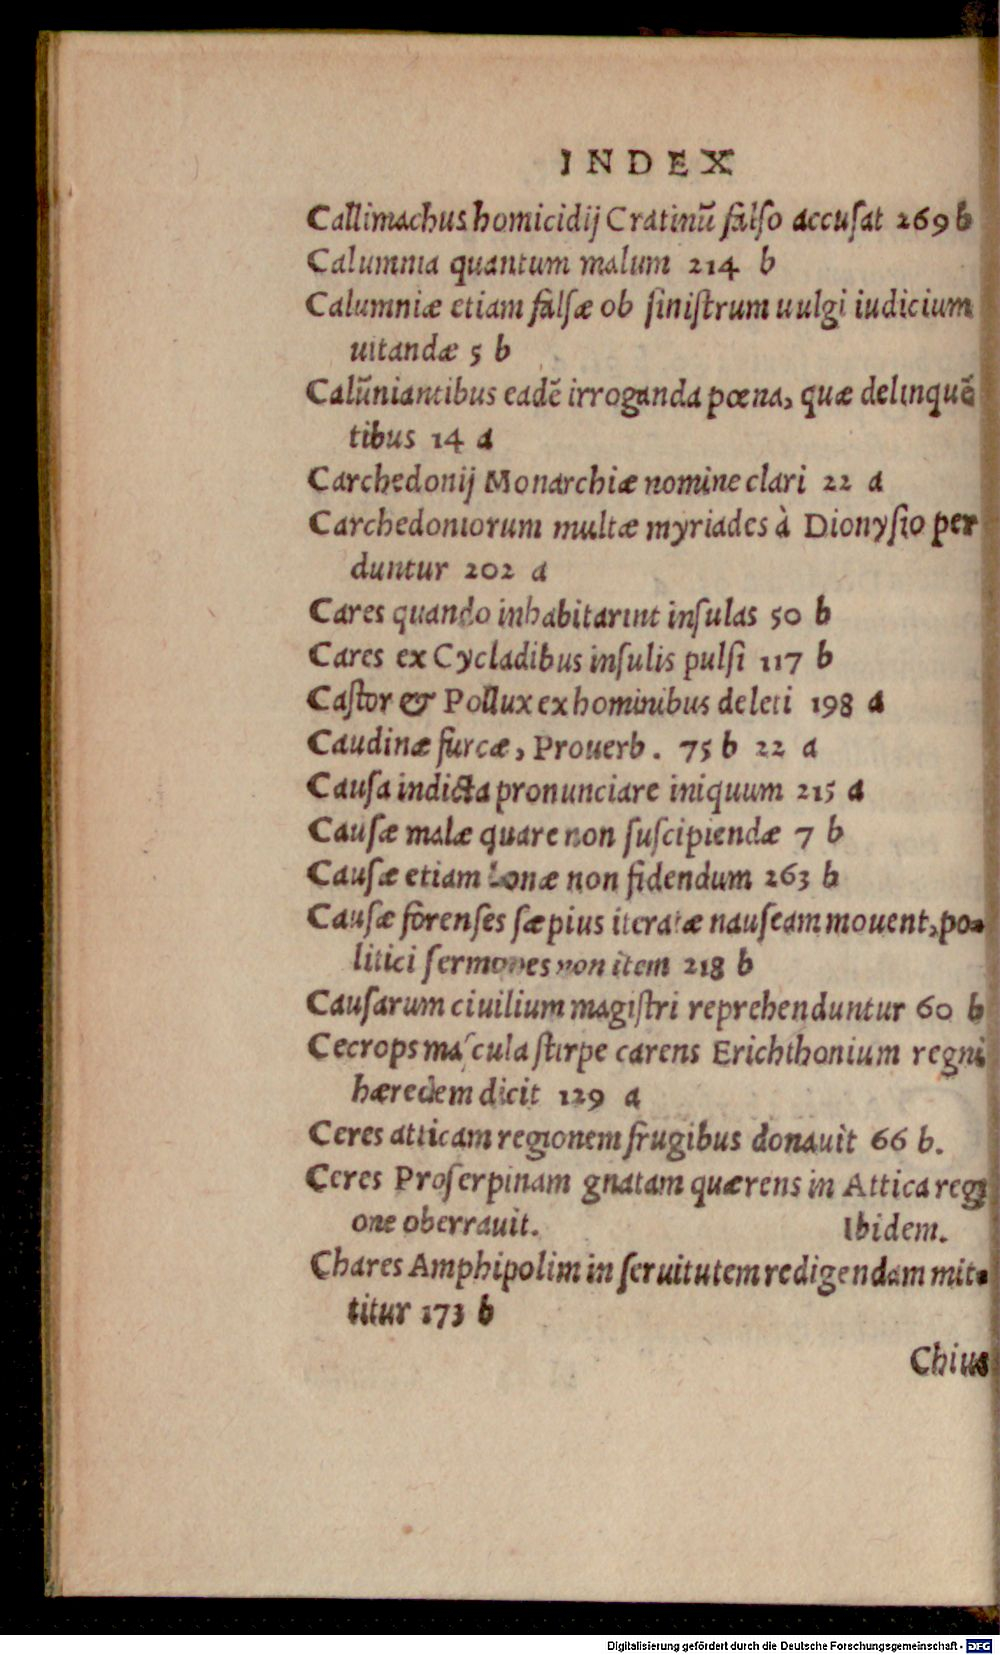 INDEX
Callimachus homicidij Cratinū falso accusat 269 b
Calumnia quantum malum 214 b
Calumniæ etiam falsæ ob sinistrum uulgi iudicium
uitandæ 5 b
Calūniantibus eadē irroganda pœna, quæ delinquē
tibus 14 a
Carchedonij Monarchiæ nomine clari 22 a
Carchedoniorum multæ myriades à Dionysio per
duntur 202 a
Cares quando inhabitarint insulas 50 b
Cares ex Cycladibus insulis pulsi 117 b
Castor & Pollux ex hominibus delecti 198 a
Caudinæ furcæ, Prouerb. 75 b 22 a
Causa indicta pronunciare iniquum 215 a
Causæ malæ quare non suscipiendæ 7 b
Causæ etiam bonæ non fidendum 263 b
Causæ forenses sæpius iteratæ nauseam mouent, po-
litici sermones non item 218 b
Causarum ciuilium magistri reprehenduntur 60 b
Cecrops mascula stirpe carens Erichthonium regni
hæredem dicit 129 a
Ceres atticam regionem frugibus donauit 66 b.
Ceres Proserpinam gnatam quærens in Attica regi
one oberrauit. Ibidem.
Chares Amphipolim in seruitutem redigendam mit-
titur 173 b
Chius
Digitalisierung gefördert durch die Deutsche Forschungsgemeinschaft - DFG